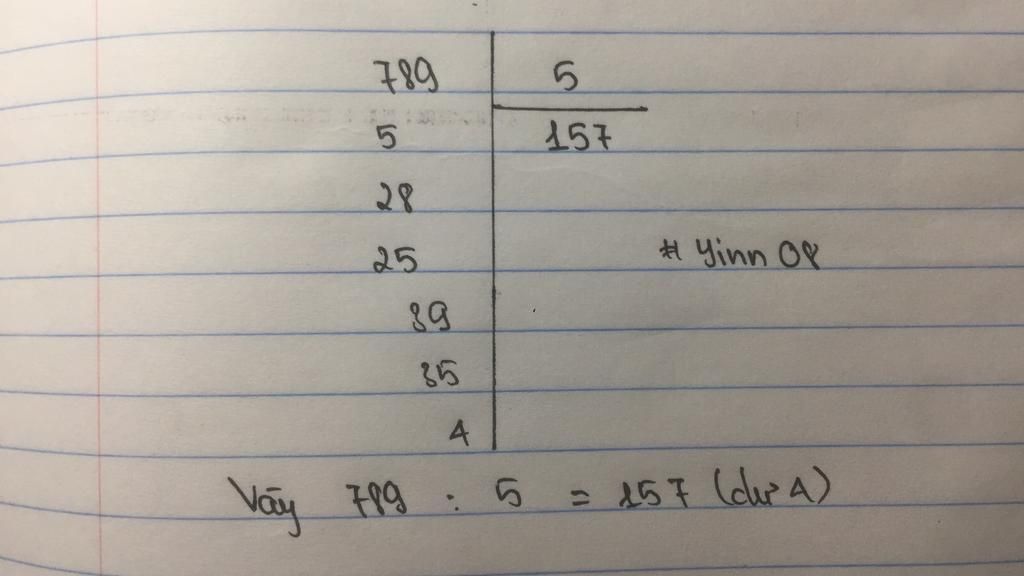 789 5
5 157
28
25 # Yinn 08
39
35
4
Vậy 789 : 5 = 157 (dư 4)